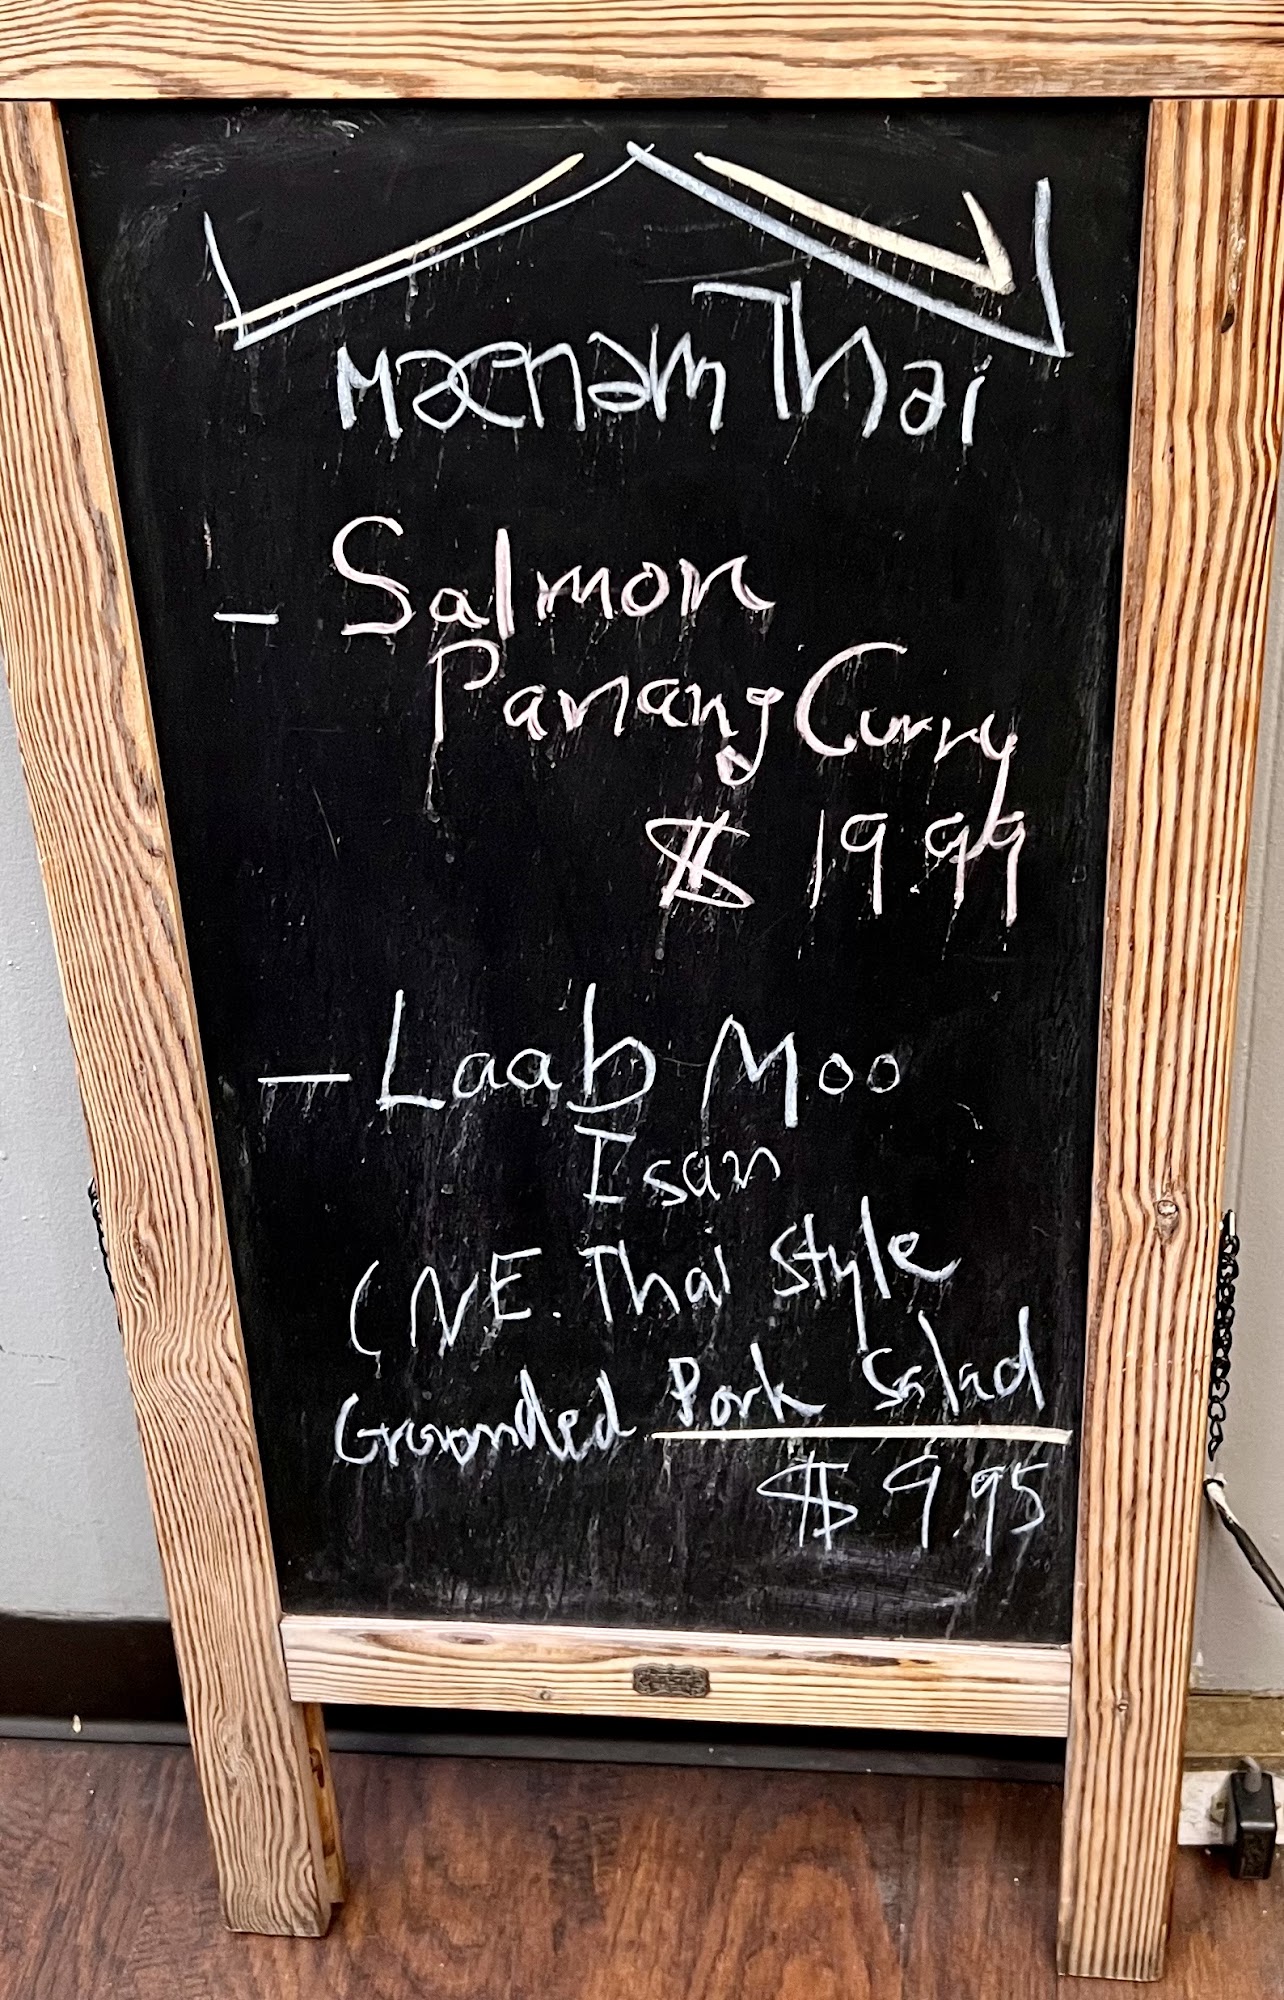 Maenam Thai
- Salmon
Panang Curry
$ 19.99
- Laab Moo
Isan
( NE. Thai Style
Grounded Pork Salad
$ 9.95